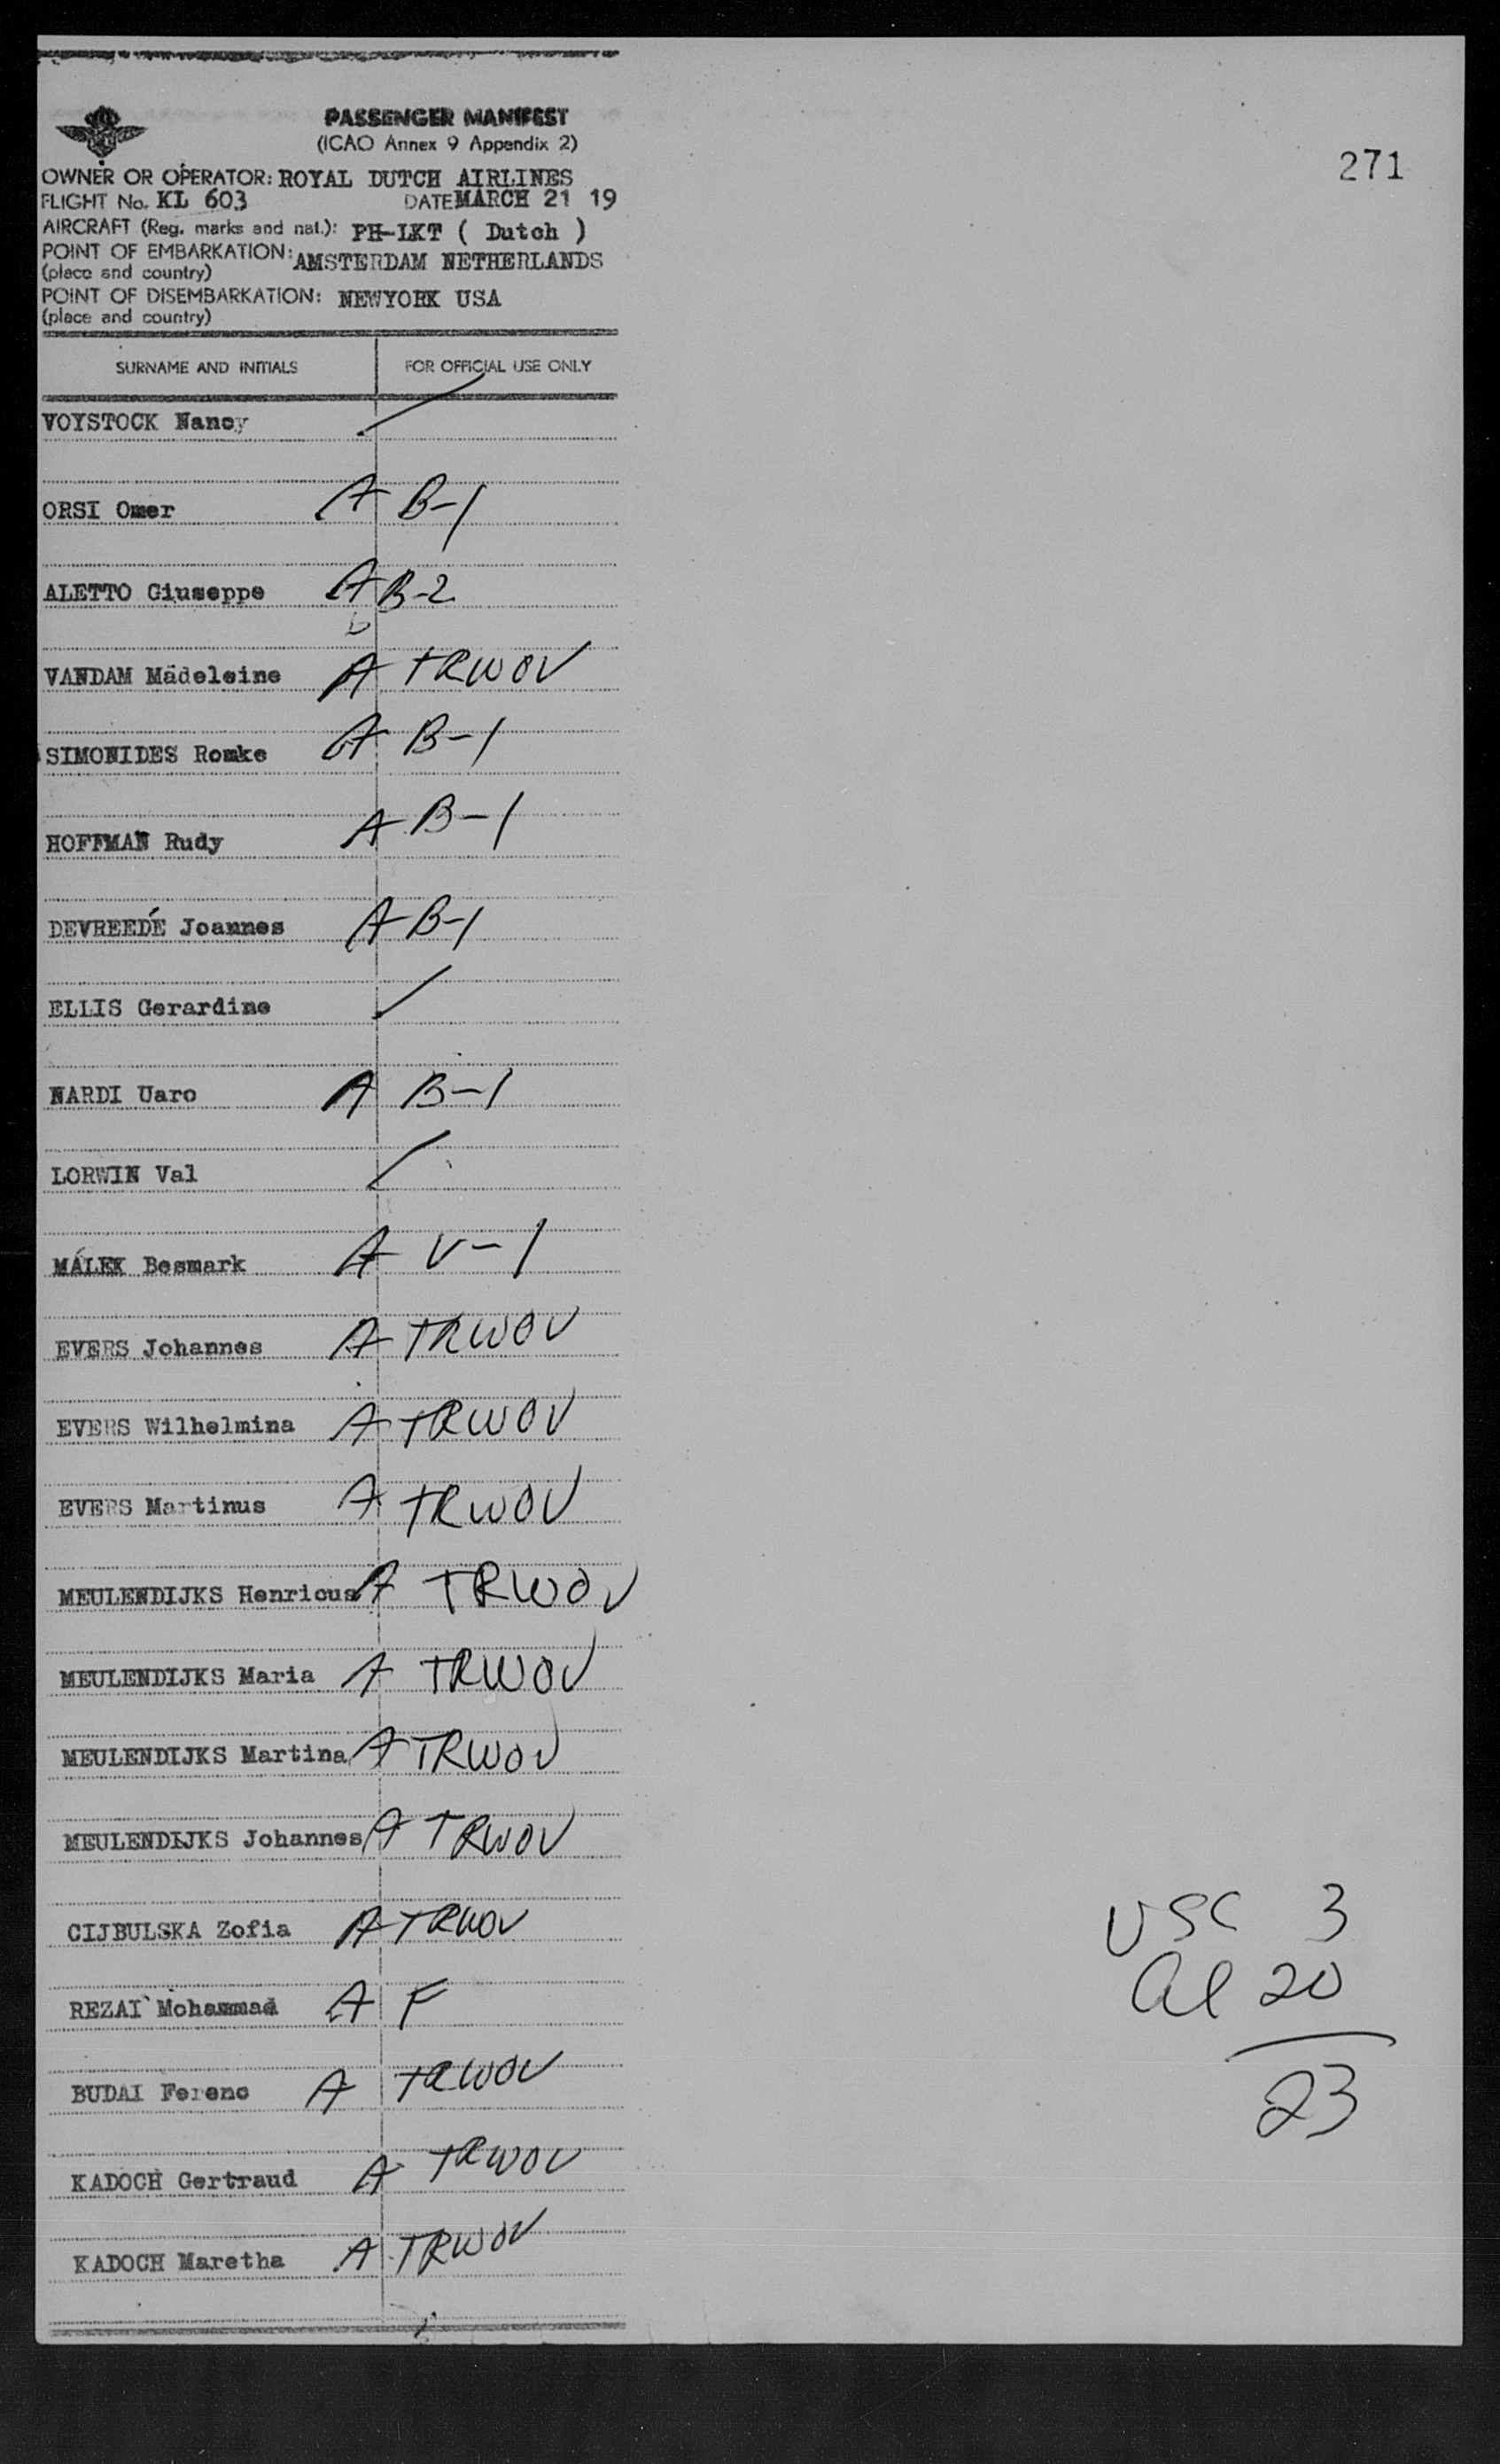 271
PASSENGER MANIFEST
(ICAO Annex 9 Appendix 2)
OWNER OR OPERATOR: ROYAL DUTCH AIRLINES
FLIGHT No. KL 603 DATE MARCH 21 19
AIRCRAFT (Reg. marks and nat.): PH-LKT ( Dutch )
POINT OF EMBARKATION: AMSTERDAM NETHERLANDS
(place and country)
POINT OF DISEMBARKATION: NEWYORK USA
(place and country)
SURNAME AND INITIALS FOR OFFICIAL USE ONLY
VOYSTOCK Nancy
ORSI Omer A B-1
ALETTO Giuseppe A B-2
VANDAM Mädeleine A TRWOV
SIMONIDES Romke A B-1
HOFFMAN Rudy A B-1
DEVREEDE Joannes A B-1
ELLIS Gerardine
NARDI Uaro A B-1
LORWIN Val
MALEK Besmark A V-1
EVERS Johannes A TRWOV
EVERS Wilhelmina A TRWOV
EVERS Martinus A TRWOV
MEULENDIJKS Henricus A TRWOV
MEULENDIJKS Maria A TRWOV
MEULENDIJKS Martina A TRWOV
MEULENDIJKS Johannes A TRWOV
CIJBULSKA Zofia A TRWOV
REZAI Mohammad A F
BUDAI Ferenc A TRWOV
KADOCH Gertraud A TRWOV
KADOCH Maretha A TRWOV
USC 3
al 20
23